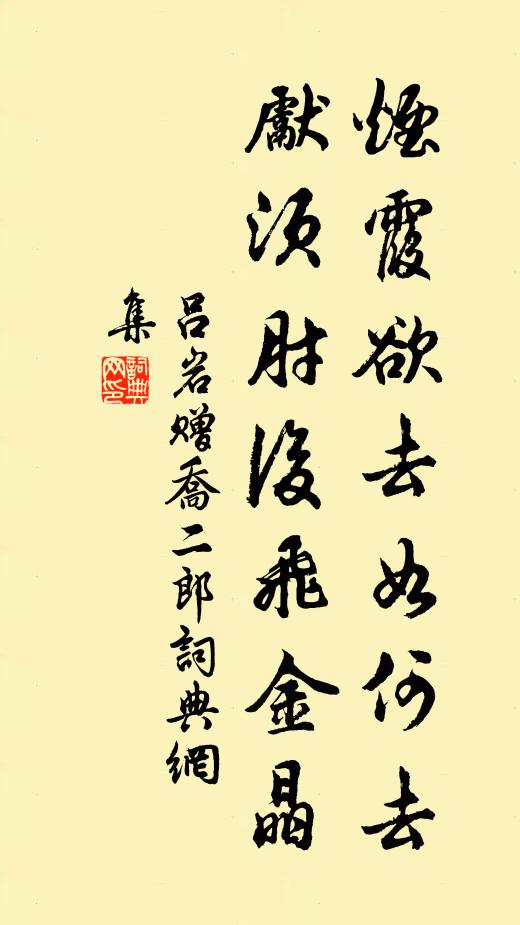 煙霞欲去如何去
獻須肘後飛金晶
吕岩赠喬二郎詞典網
集
詞典網印